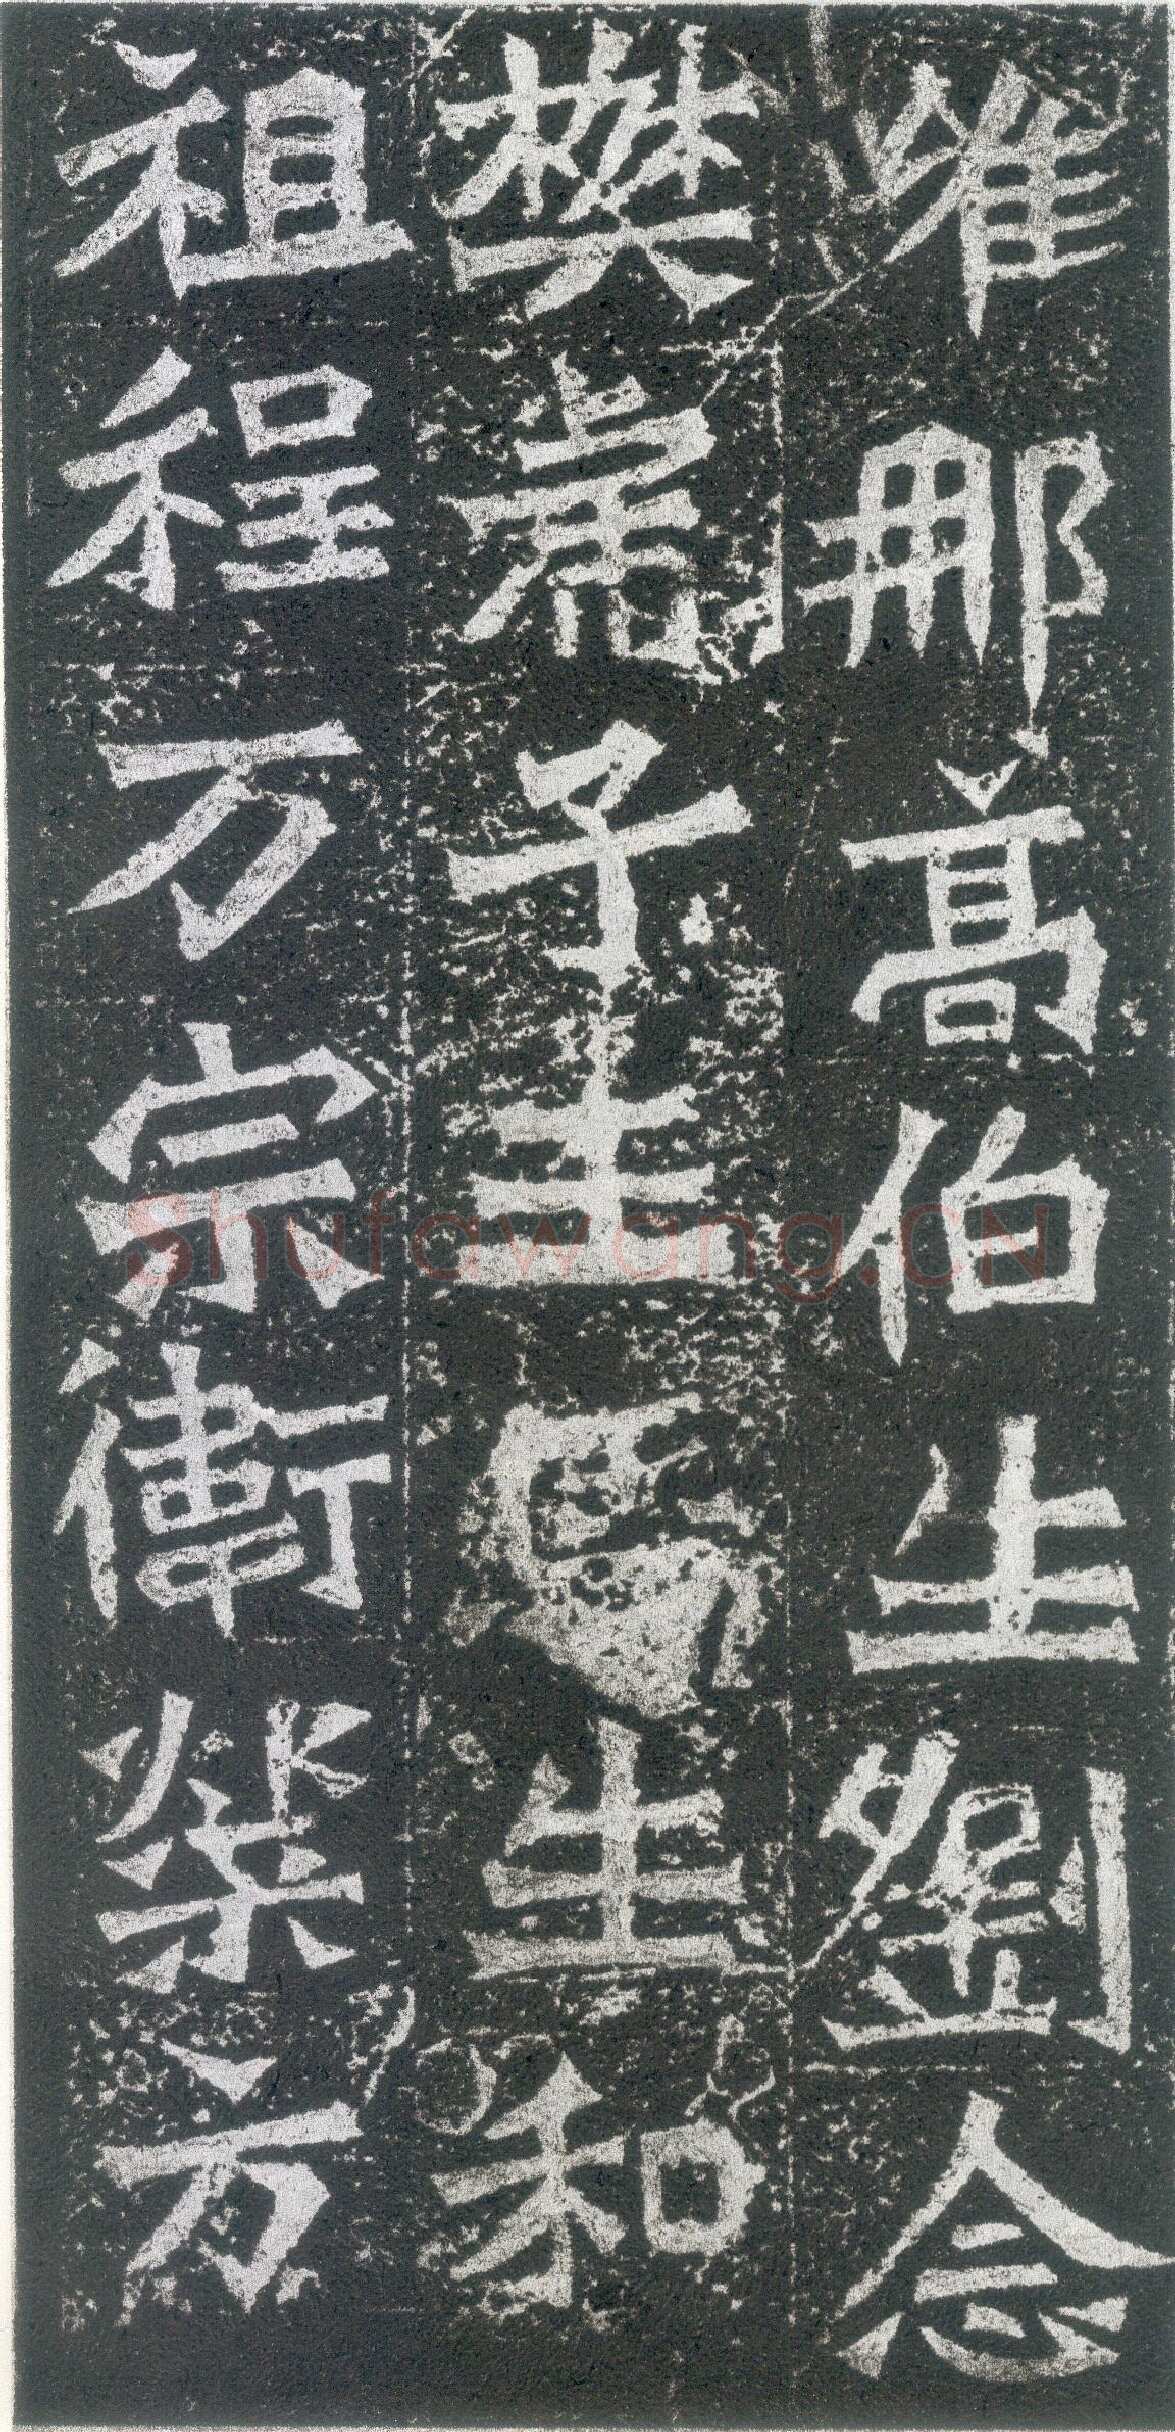 唯那高伯生劉念
樊崇子王　生和
祖程万宗衛榮方
Shufawang.CN